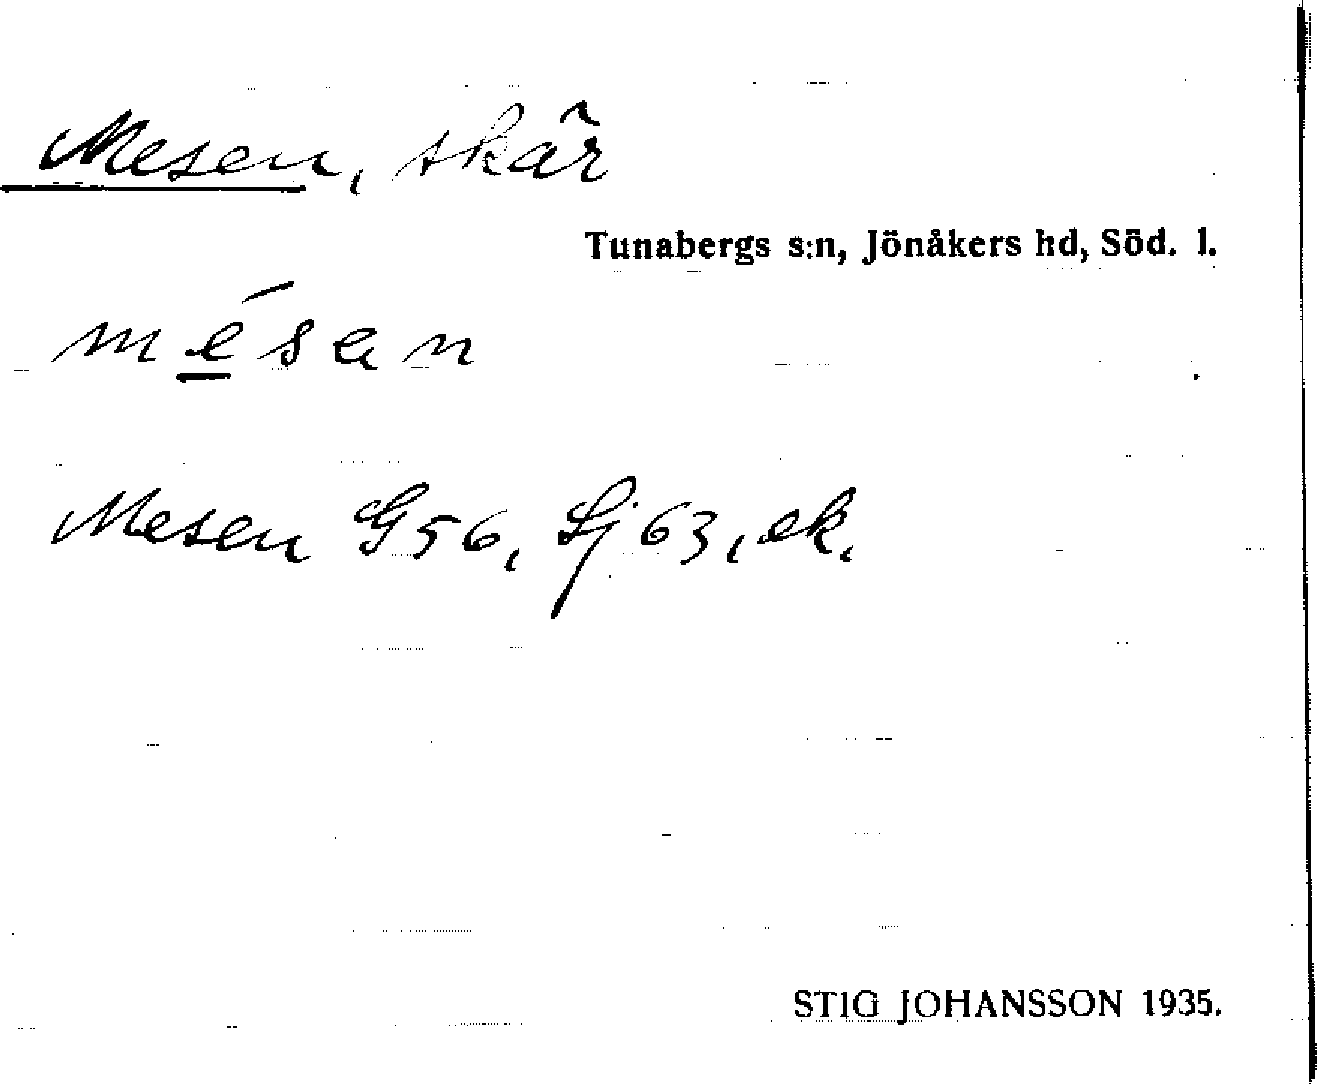 Mesen, skär
Tunabergs s:n, Jönåkers hd, Söd. l.
mésan
Mesen G 56, Sj 63, ek.
STIG JOHANSSON 1935.